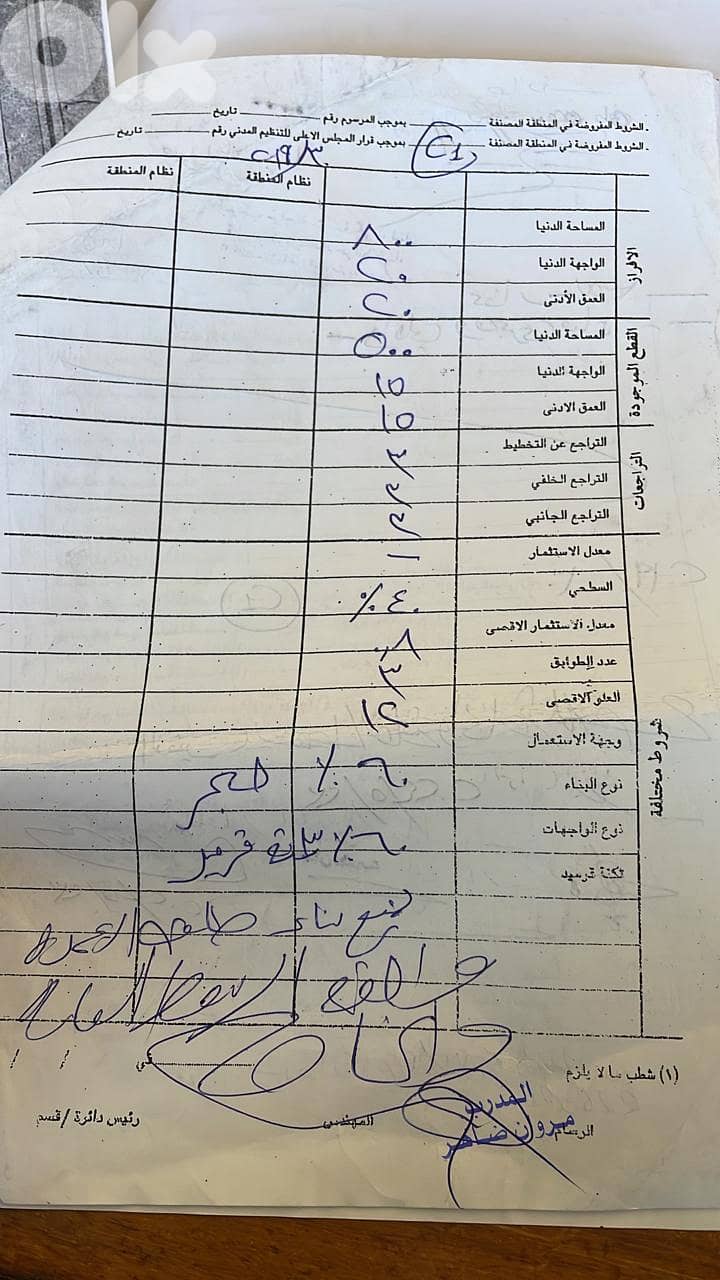 olx
الشروط المفروضة في المنطقة المصنفة بموجب المرسوم رقم تاريخ
الشروط المفروضة في المنطقة المصنفة C1 بموجب قرار المجلس الاعلى للتنظيم المدني رقم تاريخ
نظام المنطقة نظام المنطقة
الافراز
المساحة الدنيا ٨٠٠
الواجهة الدنيا ٢٠
العمق الأدنى ٢٠
القطع الموجودة
المساحة الدنيا ٥٠٠
الواجهة الدنيا ١٥
العمق الادنى ١٥
التراجعات
التراجع عن التخطيط ٣
التراجع الخلفي ٣
التراجع الجانبي ٣
شروط مختلفة
معدل الاستثمار
السطحي ٤٠٪
معدل الاستثمار الاقصى ٠٫٨
عدد الطوابق ٣
العلو الاقصى ١٢
وجهة الاستعمال
نوع البناء ٦٠٪ حجر
نوع الواجهات
ثكنة قرميد ٦٠٪ قرميد
يمنع بناء طابق
(١) شطب ما لا يلزم
في / /
الرسام المهندس رئيس دائرة / قسم
المدرب